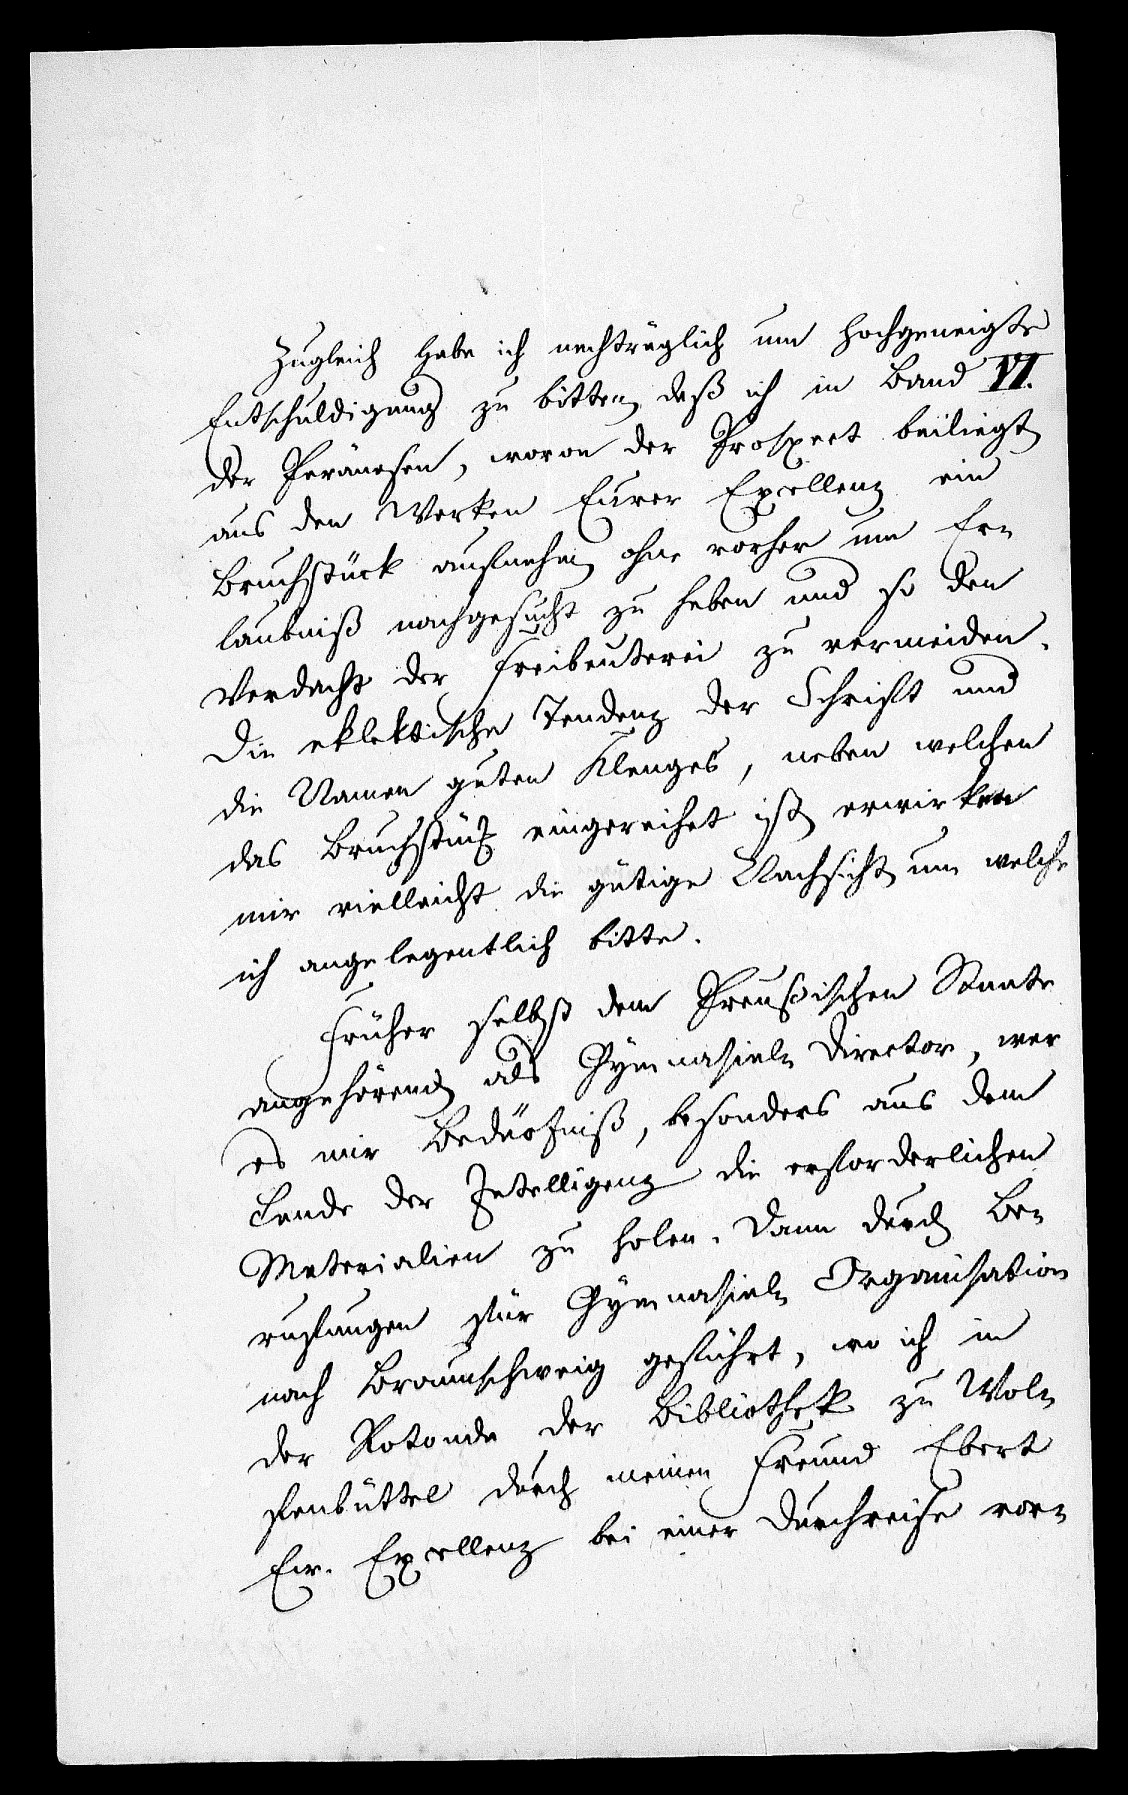 Zugleich habe ich nachträglich um hochgeneigte
Entschuldigung zu bitten, daß ich in Band VI.
der Paränesen, wovon der Prospect beiliegt,
aus den Werken Eurer Excellenz ein
Bruchstück aufnahm, ohne vorher um Er-
laubniß nachgesucht zu haben und so den
Verdacht der Freibeuterei zu vermeiden.
Die eklektische Tendenz der Schrift und
die Namen guten Klanges, neben welchen
das Bruchstück eingereihet ist, erwirken
mir vielleicht die gütige Nachsicht, um welche
ich angelegentlich bitte.
Früher selbst dem Preußischen Staate
angehörend, als Gymnasial-Director, war
es mir Bedürfniß, besonders aus dem
Lande der Intelligenz die erforderlichen
Materialien zu holen. Dann durch Be-
rufungen für Gymnasial-Organisation
nach Braunschweig geführt, wo ich in
der Rotonde der Bibliothek zu Wol-
fenbüttel durch meinen Freund Ebert
Ew. Excellenz bei einer Durchreise vor-